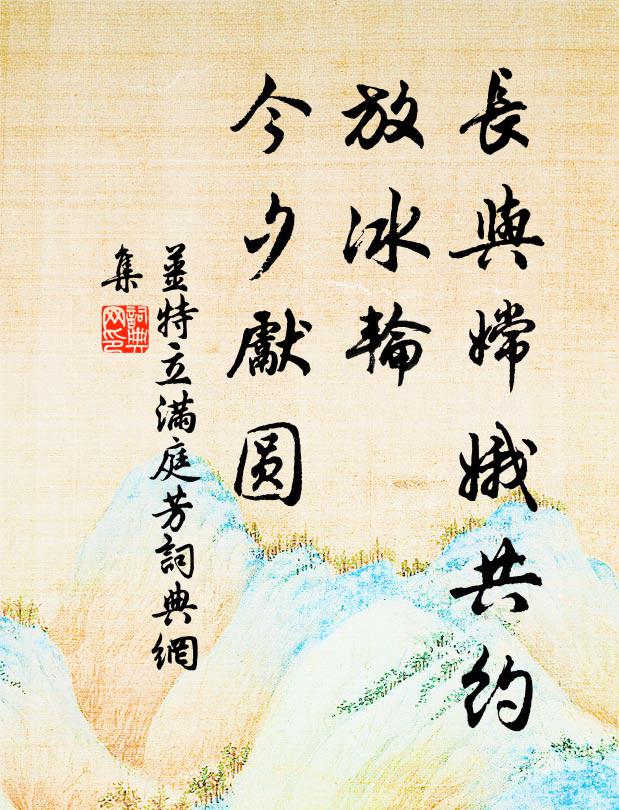 長與嫦娥共约
放冰輪
今夕獻圆
姜特立滿庭芳詞典網
集
詞典
网印